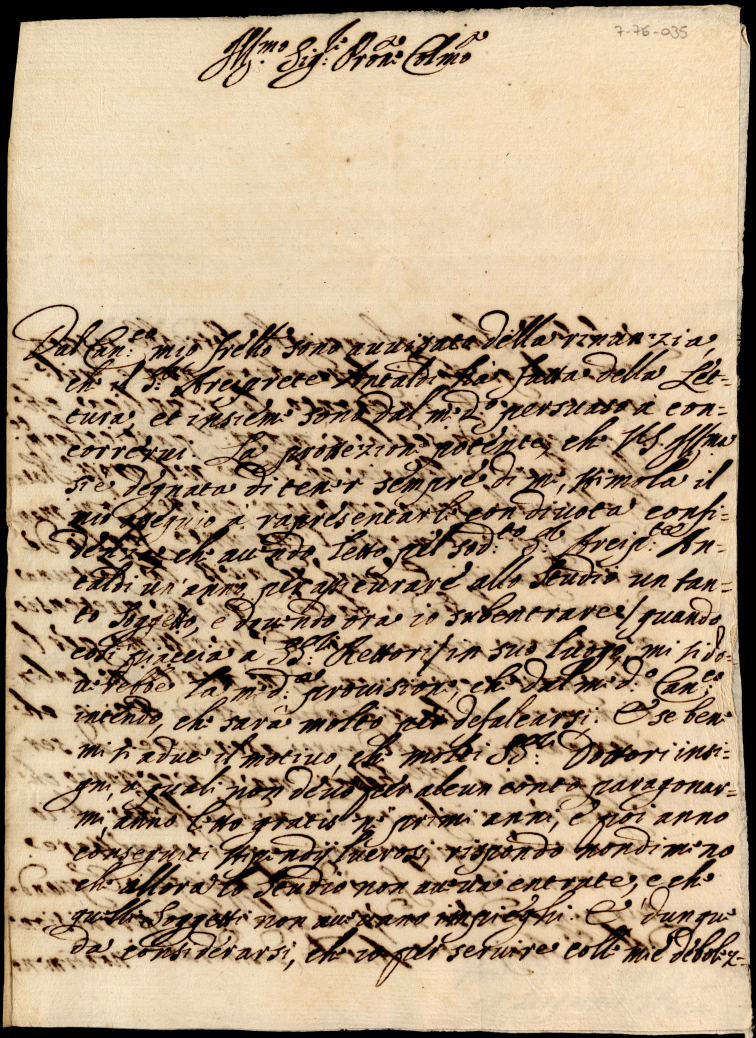 7-76-035
Illmo Sig.re Pron.e Colmo
Dal Can.co mio frello sono auuisato della rinunzia,
che il S.r Arciprete Antaldi hà fatta della Let=
tura, et insieme sono dal med.o persuaso à con=
correrui. La protezione potente, che V.S. Illma
si è degnata di tener sempre di me, stimola il
mio ossequio à rapresentarle con diuota confi=
denza, che auendo letto il sod.to S.r Arcip.te An=
taldi un' anno, per assicurare allo Studio un tan=
to Soggetto, e douendo ora io subentrare /quando
così piaccia à SS.ri Rettori/ in suo luogo, mi si do=
urebbe la med.a prouisione, che dal med.o Can.co
intendo, che sarà molto per defalcarsi. E se bene
mi si adduce il motiuo, che molti SS.ri Dottori insi=
gni, à quali non deuo per alcun conto paragonar=
mi, anno letto gratis ne' primi anni, e poi anno
conseguiti stipendij lucrosi, rispondo nondimeno
che allora lo Studio non aueua entrate, e che
quelli Soggetti non aueuano impieghi. E' dunque
da considerarsi, che io per seruire colle mie debolez=